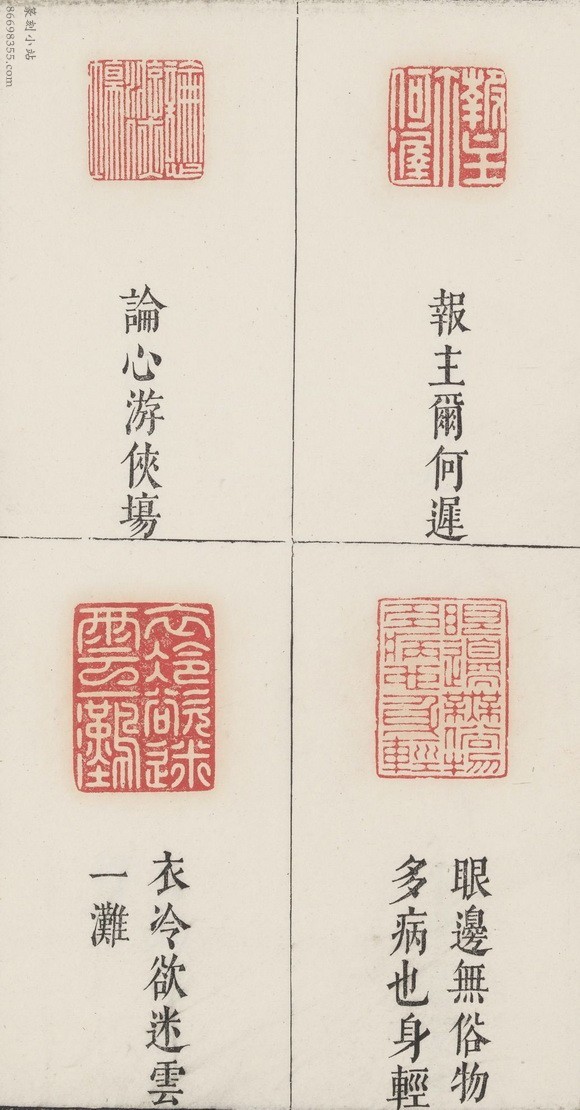 報主爾何遲
論心游俠場
眼邊無俗物
多病也身輕
衣冷欲迷雲
一灘
篆刻小站
86698355.com